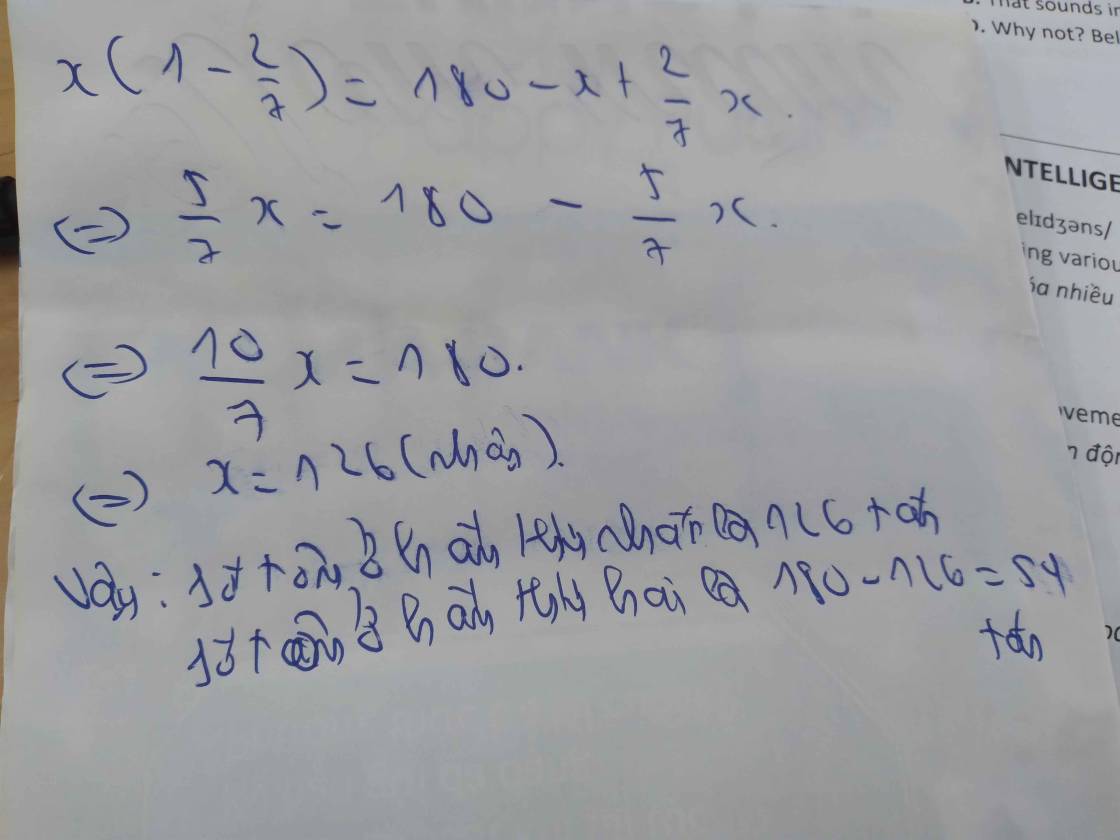 x(1 - 2/7) = 180 - x + 2/7 x.
(=) 5/7 x = 180 - 5/7 x.
(=) 10/7 x = 180.
(=) x = 126 (nhận).
Vậy: số tấn ở hầm thứ nhất là 126 tấn
số tấn ở hầm thứ hai là 180 - 126 = 54
tấn
hat sounds in
. Why not? Bel
NTELLIGE
elɪdʒəns/
ing variou
óa nhiều
veme
n độn